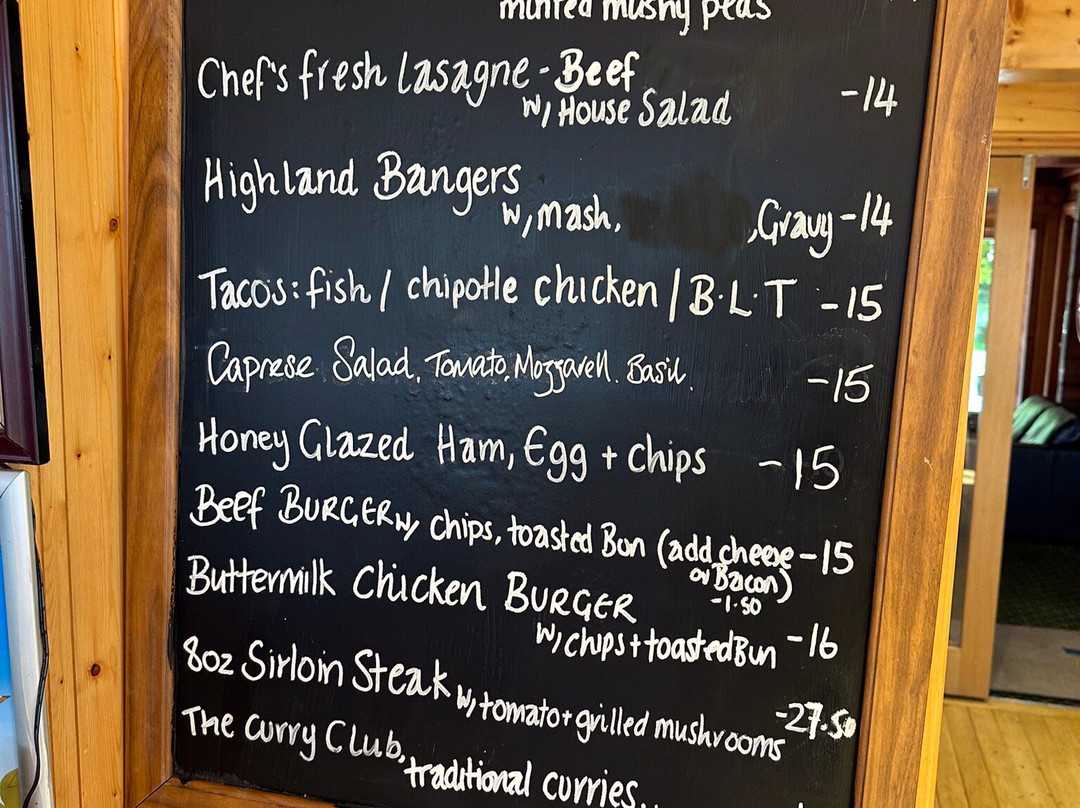 minted mushy peas
Chef's fresh Lasagne - Beef
w/ House Salad -14
Highland Bangers
w/ mash, , Gravy -14
Tacos: fish / chipotle chicken / B.L.T -15
Caprese Salad, Tomato, Mozzarell. Basil. -15
Honey Glazed Ham, Egg + chips -15
Beef BURGER w/ chips, toasted Bun (add cheese -15
or Bacon)
-1.50
Buttermilk Chicken BURGER
w/ chips + toasted Bun -16
8oz Sirloin Steak
w/ tomato + grilled mushrooms -27.50
The Curry Club,
traditional curries..